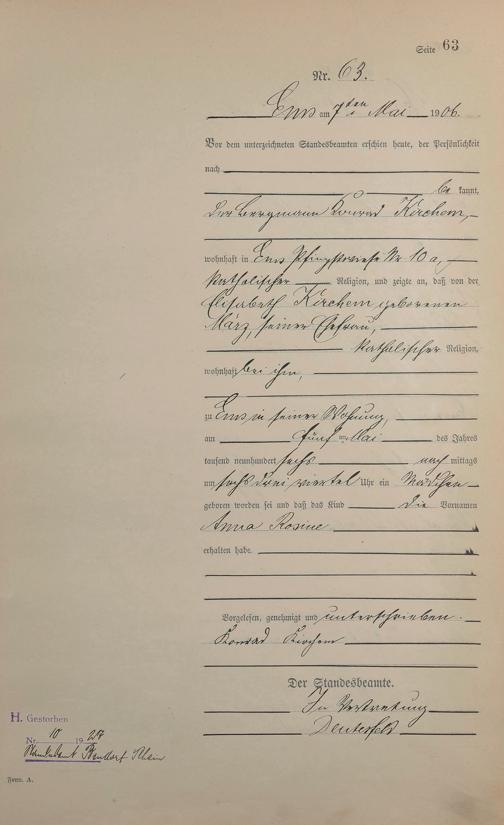 Seite 63
Nr. 63.
Ems am 7ten Mai 1906.
Vor dem unterzeichneten Standesbeamten erschien heute, der Persönlichkeit
nach
be kannt,
der Bergmann Konrad Kirchem,
wohnhaft in Ems Pfingstwiese Nr 10 a,
katholischer Religion, und zeigte an, daß von der
Elisabeth Kirchem geborenen
März, seiner Ehefrau,
katholischer Religion,
wohnhaft bei ihm,
zu Ems in seiner Wohnung,
am fünften Mai des Jahres
tausend neunhundert sechs nach mittags
um sechs drei viertel Uhr ein Mädchen
geboren worden sei und daß das Kind die Vornamen
Anna Rosine
erhalten habe.
Vorgelesen, genehmigt und unterschrieben.
Konrad Kirchem
Der Standesbeamte.
In Vertretung
H. Gestorben
Nr. 10 19
Standesamt Bendorf Rhein
Form. A.